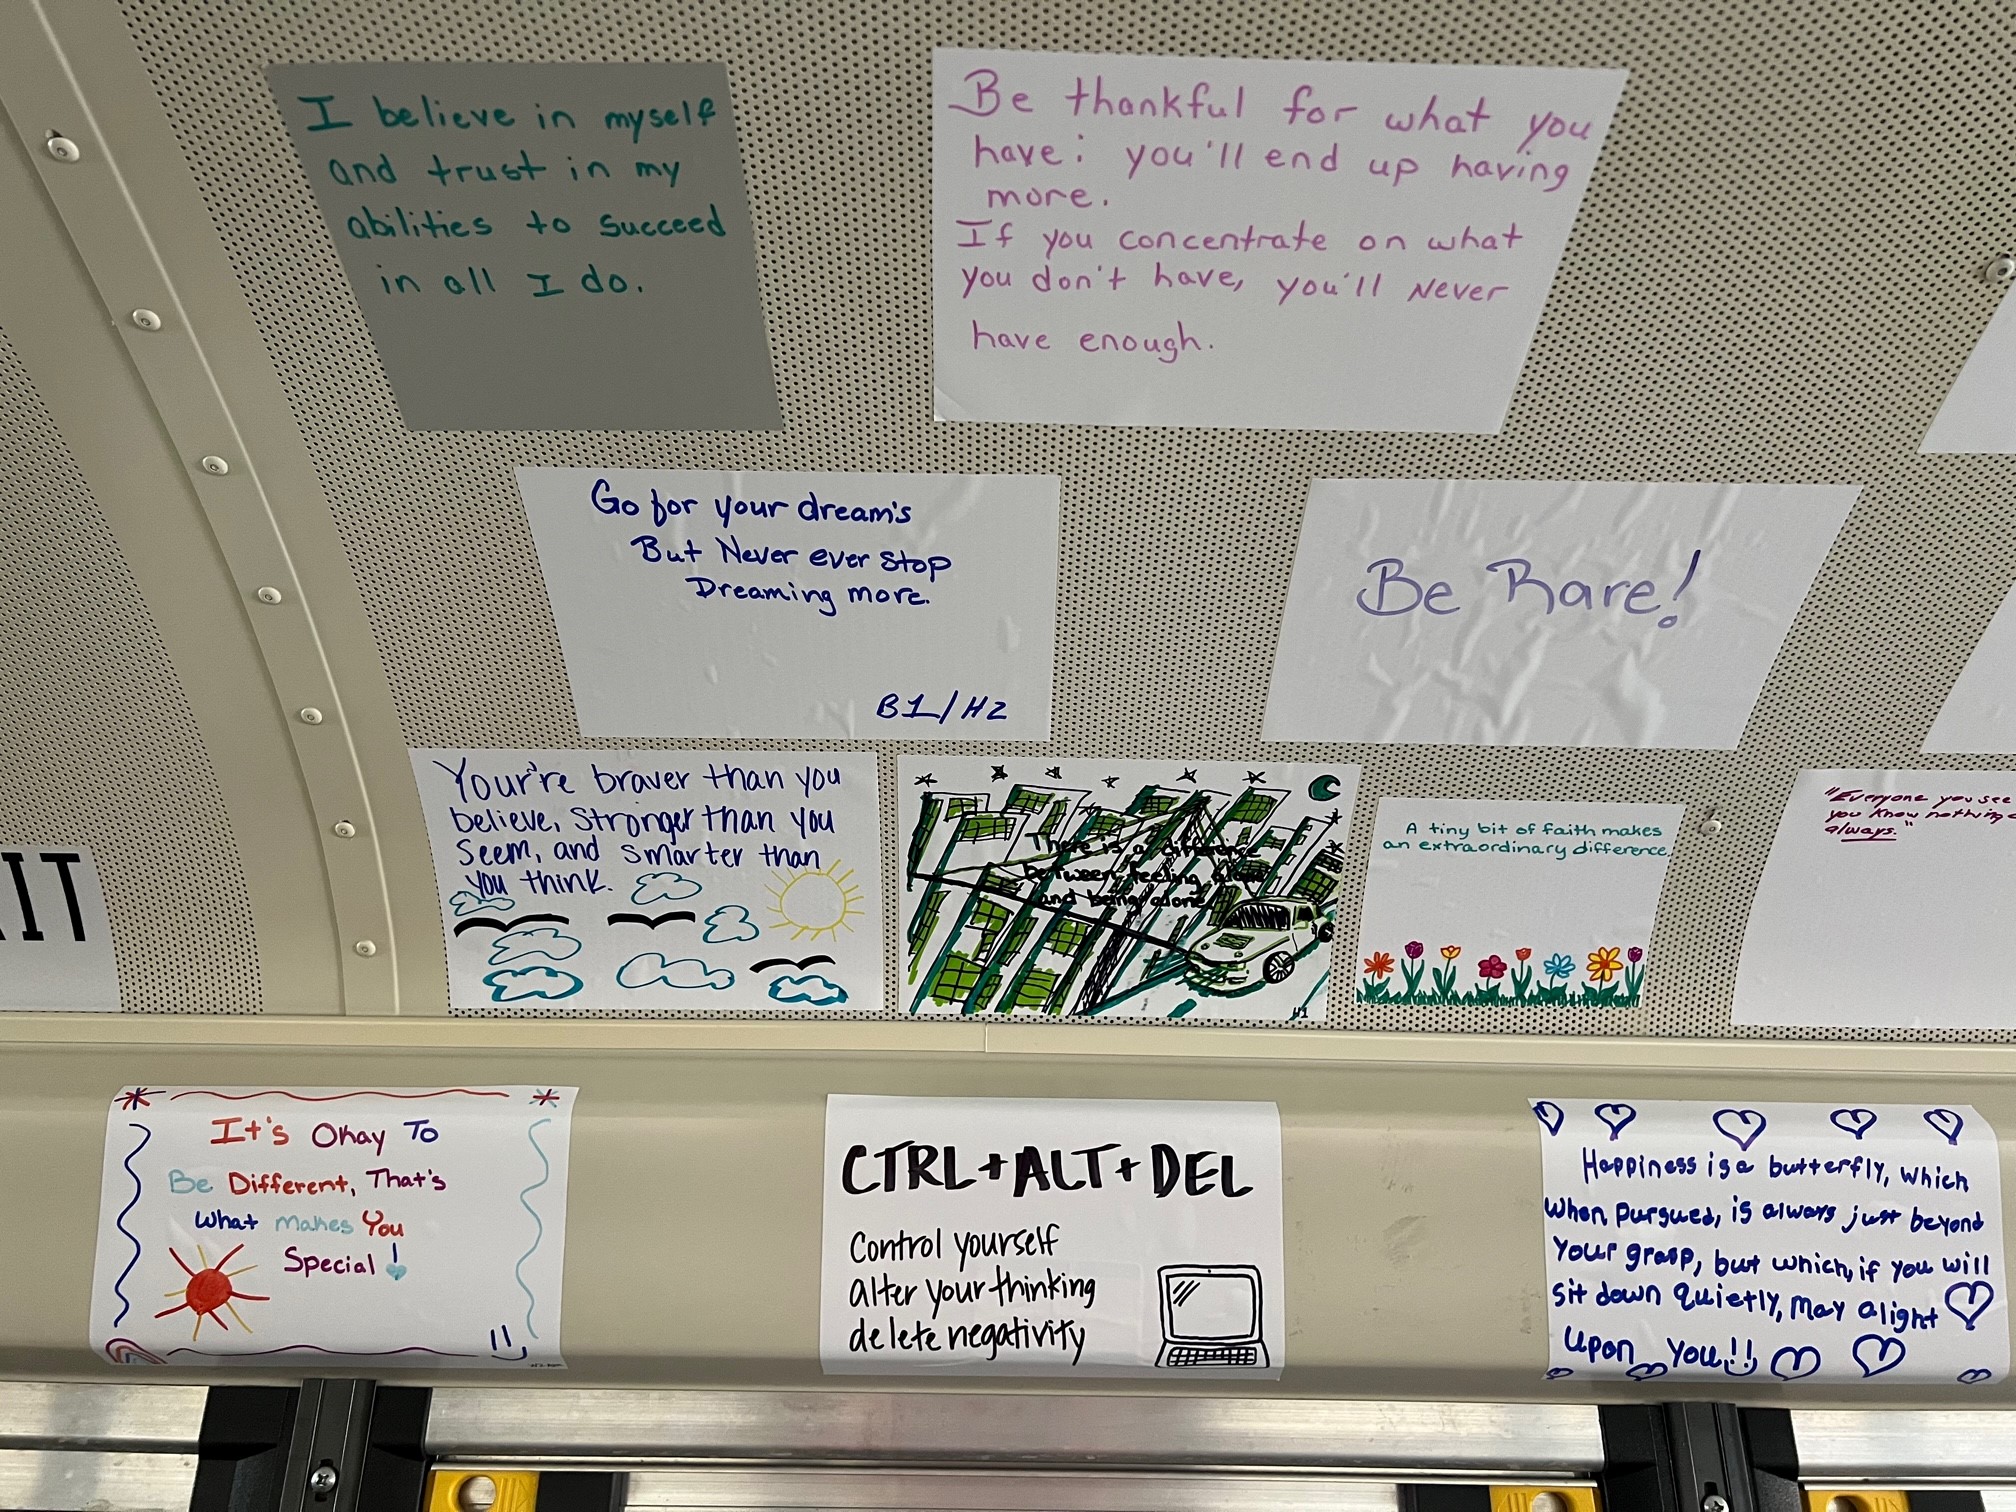 I believe in myself
and trust in my
abilities to succeed
in all I do.
Be thankful for what you
have; you'll end up having
more.
If you concentrate on what
you don't have, you'll Never
have enough.
Go for your dream's
But Never ever stop
Dreaming more.
B1/H2
Be Rare!
Your're braver than you
believe, stronger than you
seem, and smarter than
you think.
There is a difference
between feeling alone
and being alone.
H1
A tiny bit of faith makes
an extraordinary difference.
"Everyone you see
you know nothing
always."
IT
It's Okay To
Be Different, That's
What makes You
Special!
CTRL+ALT+DEL
Control yourself
alter your thinking
delete negativity
Happiness is a butterfly, which
when pursued, is always just beyond
your grasp, but which, if you will
sit down quietly, may alight
upon you!!